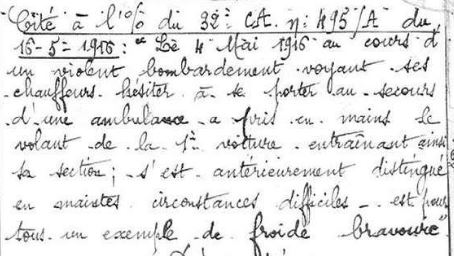 Cité à l'O/ du 38e C.A. n: 495/A du
16-5-1916: "Le 4 Mai 1916 au cours d'
un violent bombardement voyant ses
chauffeurs hésiter à se porter au secours
d'une ambulance a pris en mains le
volant de la 1re voiture entraînant ainsi
sa section; s'est antérieurement distingué
en maintes circonstances difficiles - est pour
tous un exemple de froide bravoure"